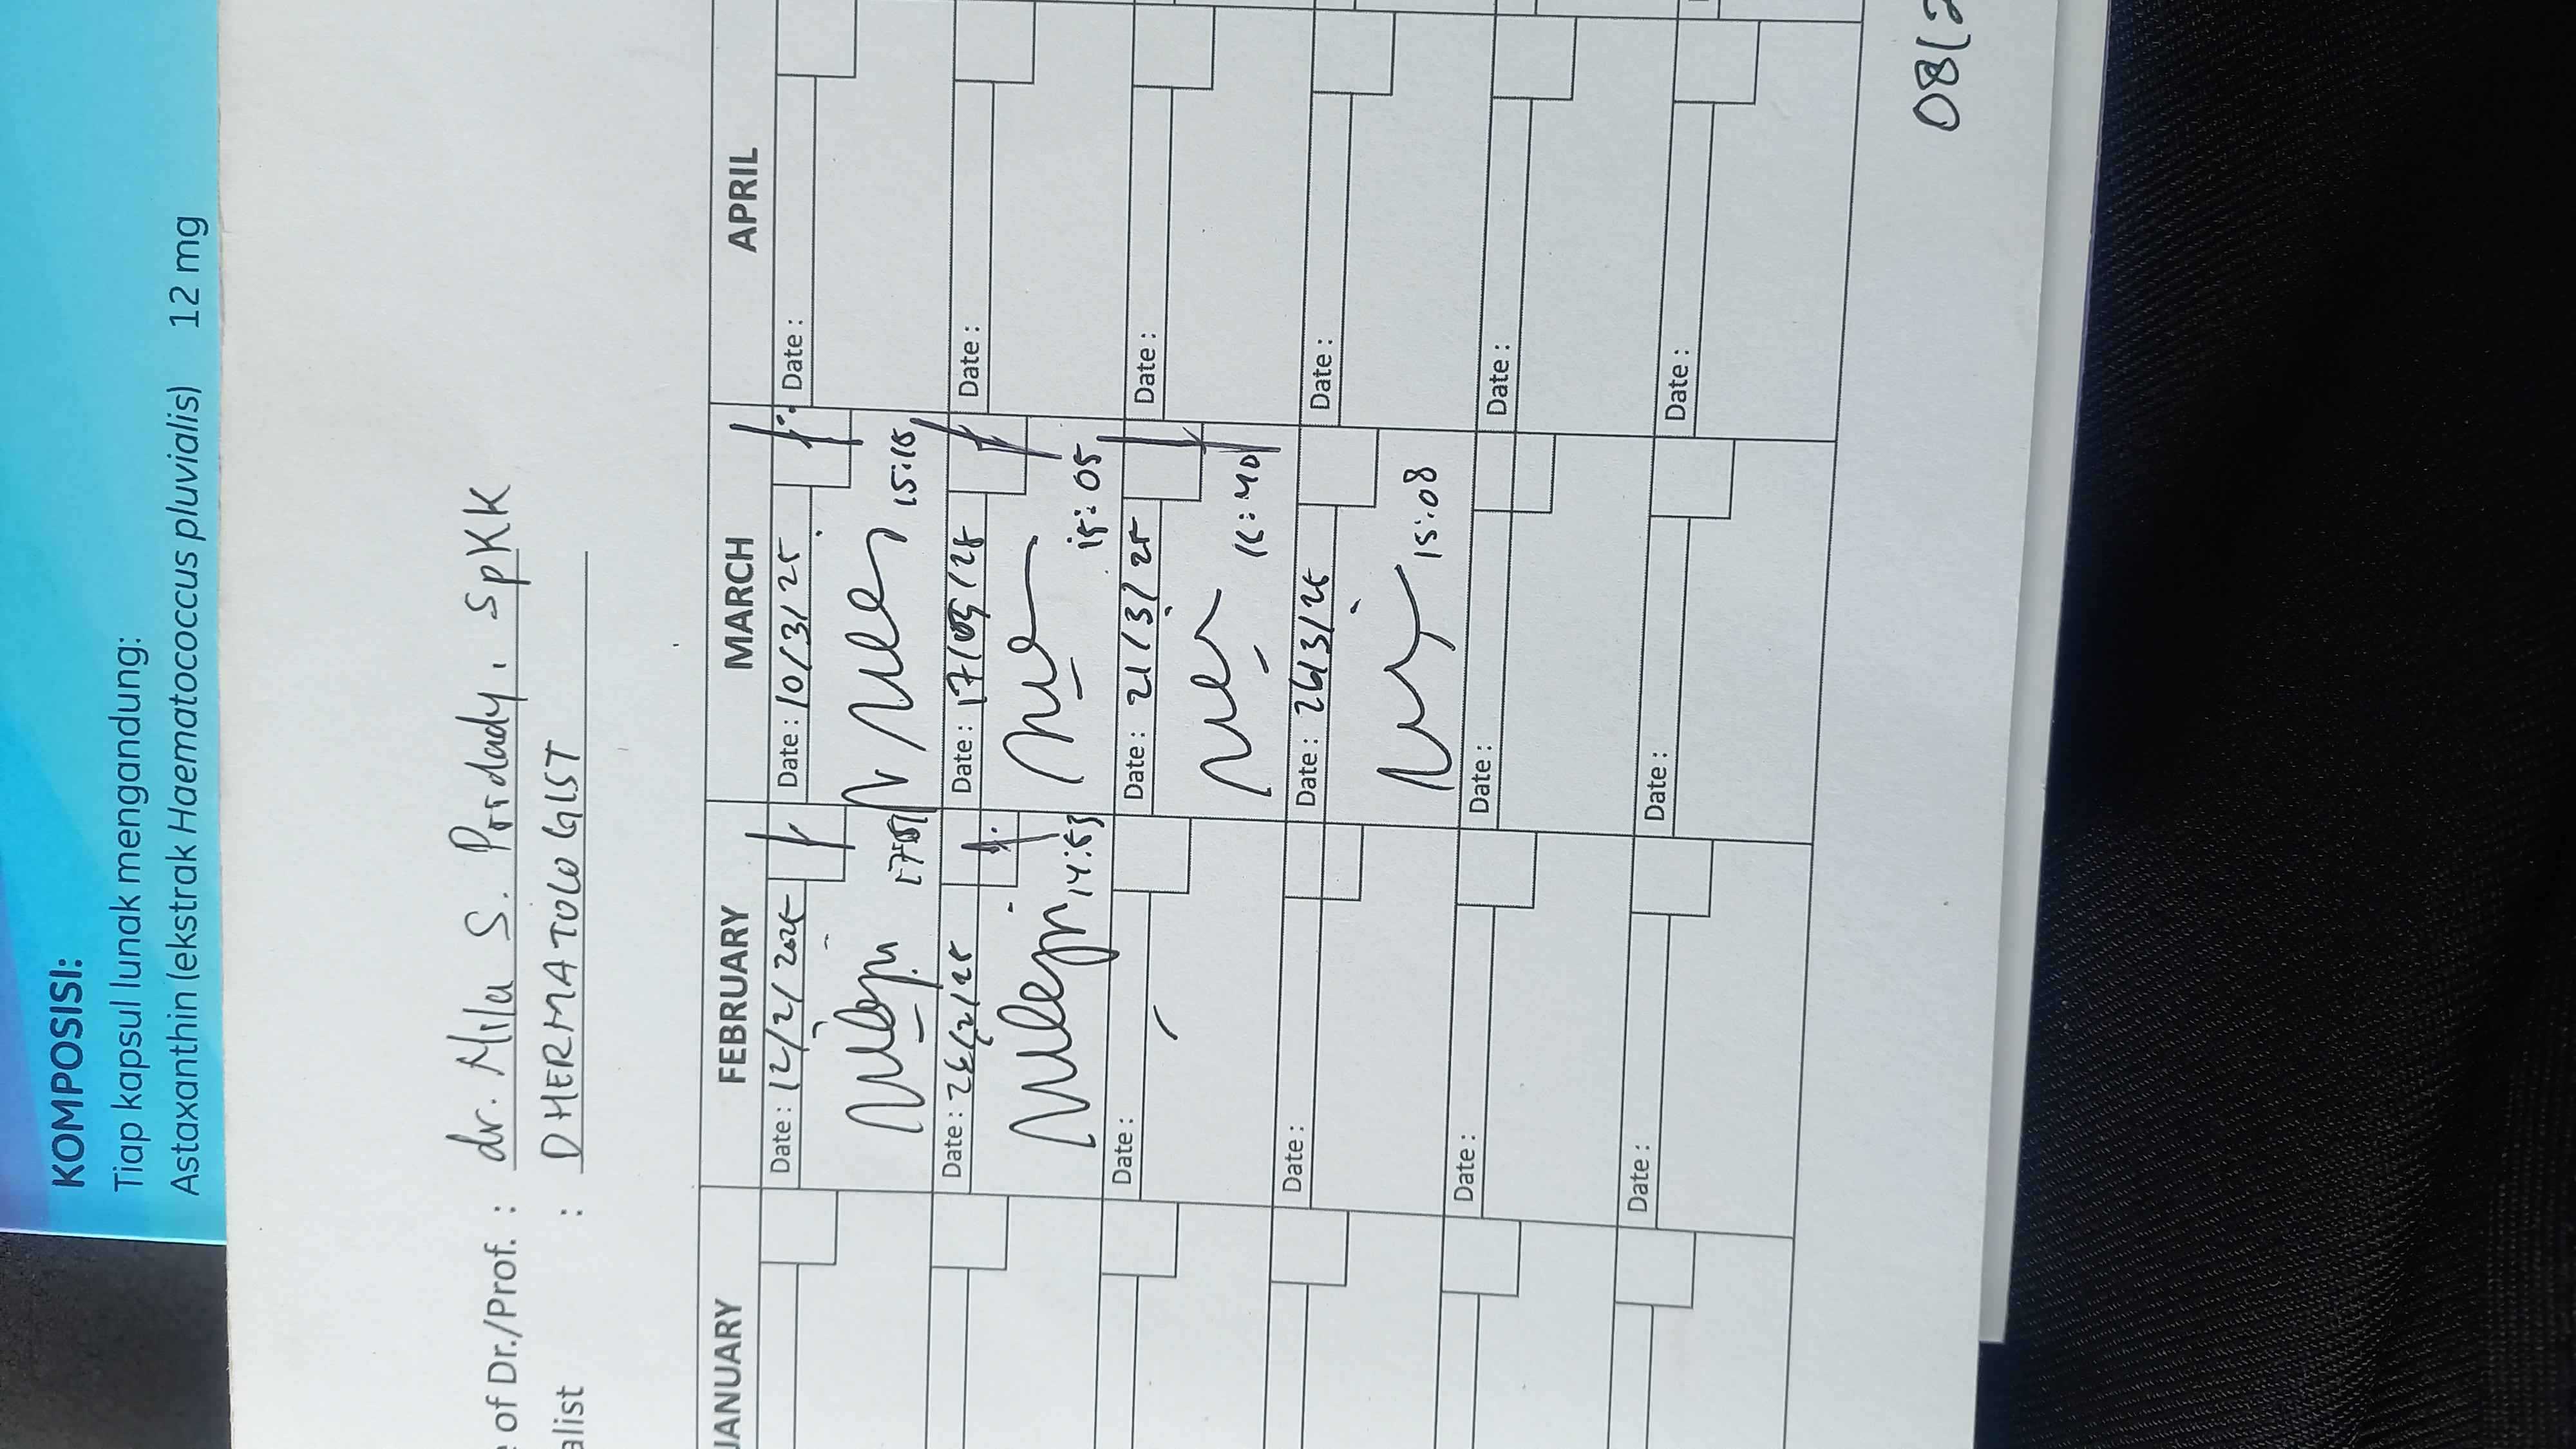 KOMPOSISI:
Tiap kapsul lunak mengandung:
Astaxanthin (ekstrak Haematococcus pluvialis) 12 mg
of Dr./Prof. : dr. Mila S. , SpKK
alist : DHERMATOLOGIST
JANUARY FEBRUARY MARCH APRIL
Date : 12/2/2025 Date : 10/3/25 Date :
15:15
Date : 26/2/25 Date : 17/03/25 Date :
14:53 15:05
Date : Date : 21/3/25 Date :
16:40
Date : Date : 26/3/25 Date :
15:08
Date : Date : Date :
Date : Date : Date :